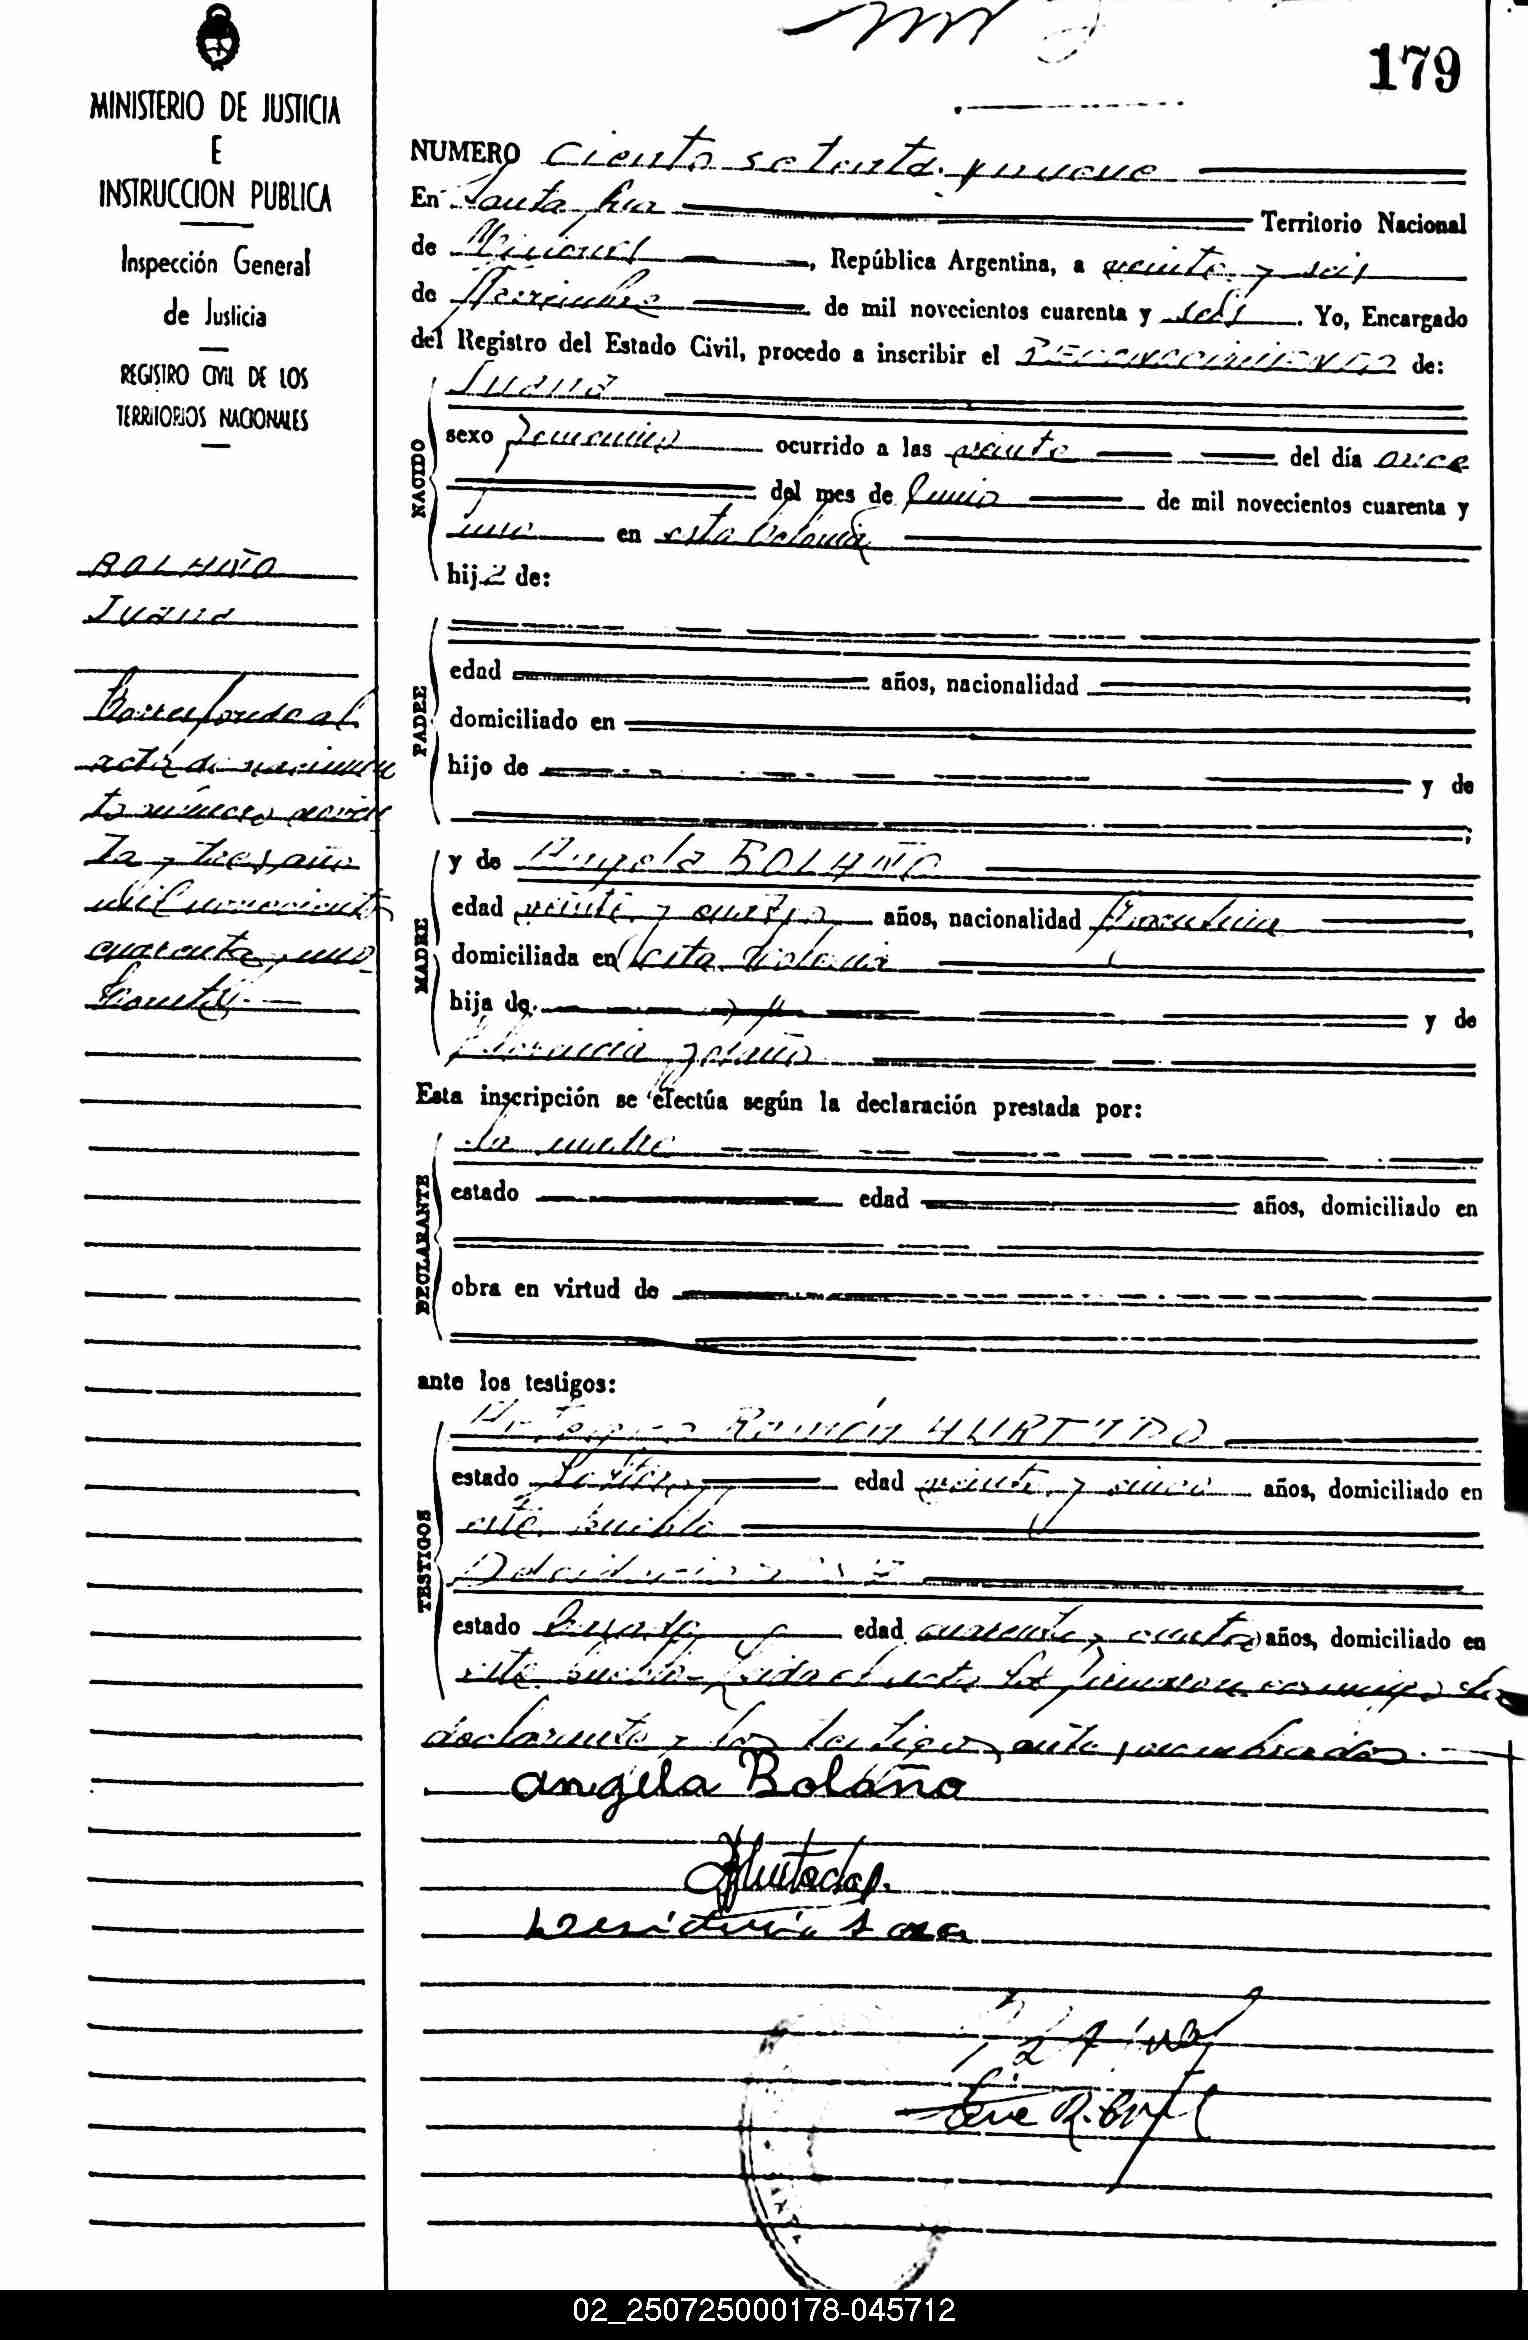 179
MINISTERIO DE JUSTICIA
E
INSTRUCCION PUBLICA
Inspección General
de Justicia
REGISTRO CIVIL DE LOS
TERRITORIOS NACIONALES
BOLAÑO
Juana
Corresponde al
acta de nacimien
to número noven
ta y tres año
mil novecientos
cuarenta y uno
NUMERO Ciento setenta y nueve
En Santa Ana Territorio Nacional
de Misiones, República Argentina, a veinte y seis
de Noviembre de mil novecientos cuarenta y seis. Yo, Encargado
del Registro del Estado Civil, procedo a inscribir el RECONOCIMIENTO de:
NACIDO
Juana
sexo femenino ocurrido a las veinte del día once
del mes de Junio de mil novecientos cuarenta y
uno en esta Colonia
hija de:
PADRE
edad años, nacionalidad
domiciliado en
hijo de y de
MADRE
y de Angela BOLAÑO
edad veinte y cuatro años, nacionalidad Argentina
domiciliada en esta Colonia
hija de y de
Bolaño
Esta inscripción se efectúa según la declaración prestada por:
DECLARANTE
la madre
estado edad años, domiciliado en
obra en virtud de
ante los testigos:
TESTIGOS
Ramón HURTADO
estado Soltero edad veinte y cinco años, domiciliado en
este pueblo
estado Casado edad cuarenta y cuatro años, domiciliado en
este pueblo. Leida el acta la firmaron conmigo la
declarante y los testigos ante nombrados.
Angela Bolaño
Hurtado
02_250725000178-045712